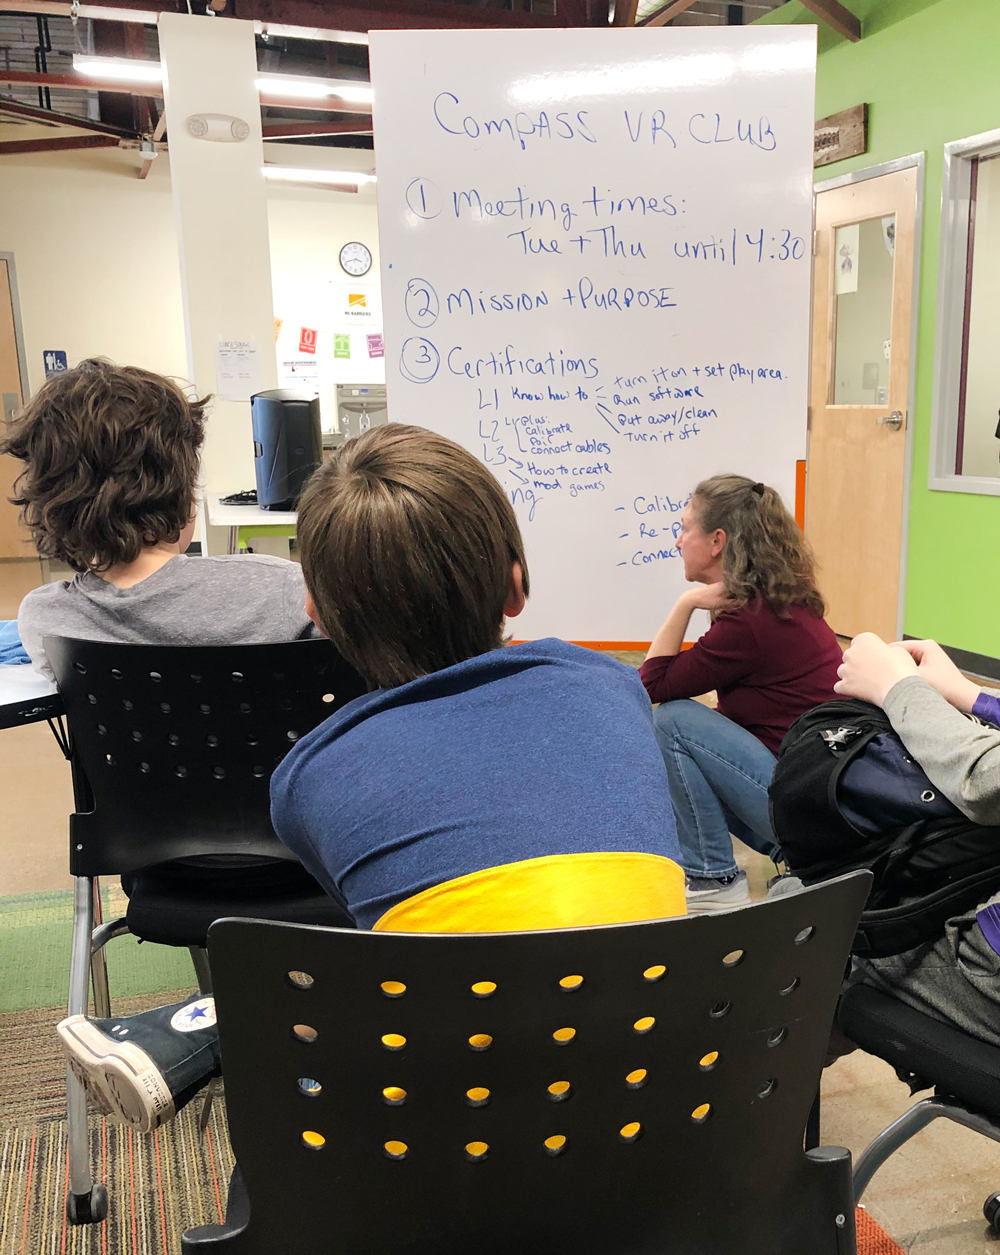 COMPASS VR CLUB
① Meeting times:
Tue + Thu until 4:30
② MISSION + PURPOSE
③ Certifications
L1 Know how to
turn it on + set play area.
Run software
Put away/clean
turn it off
L2 plus:
calibrate
pair
connect cables
L3 How to create
mod games
ing
- Calibra
- Re-p
- Connect
NO BARRIERS